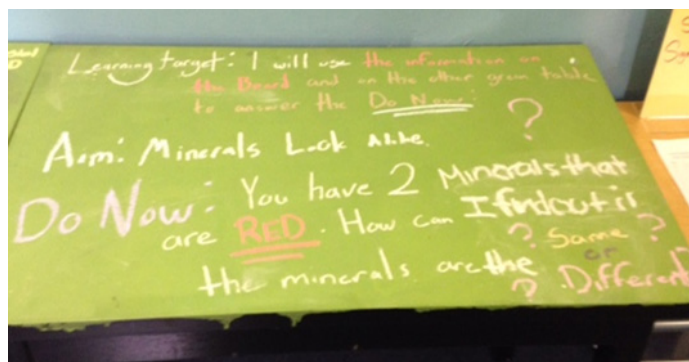 Learning target: I will use the information on
the Board and on the other green table
to answer the Do Now:
?
Aim: Minerals Look Alike.
Do Now: You have 2 Minerals that
are RED. How can I find out if
the minerals are the ? Same ?
or
? Different